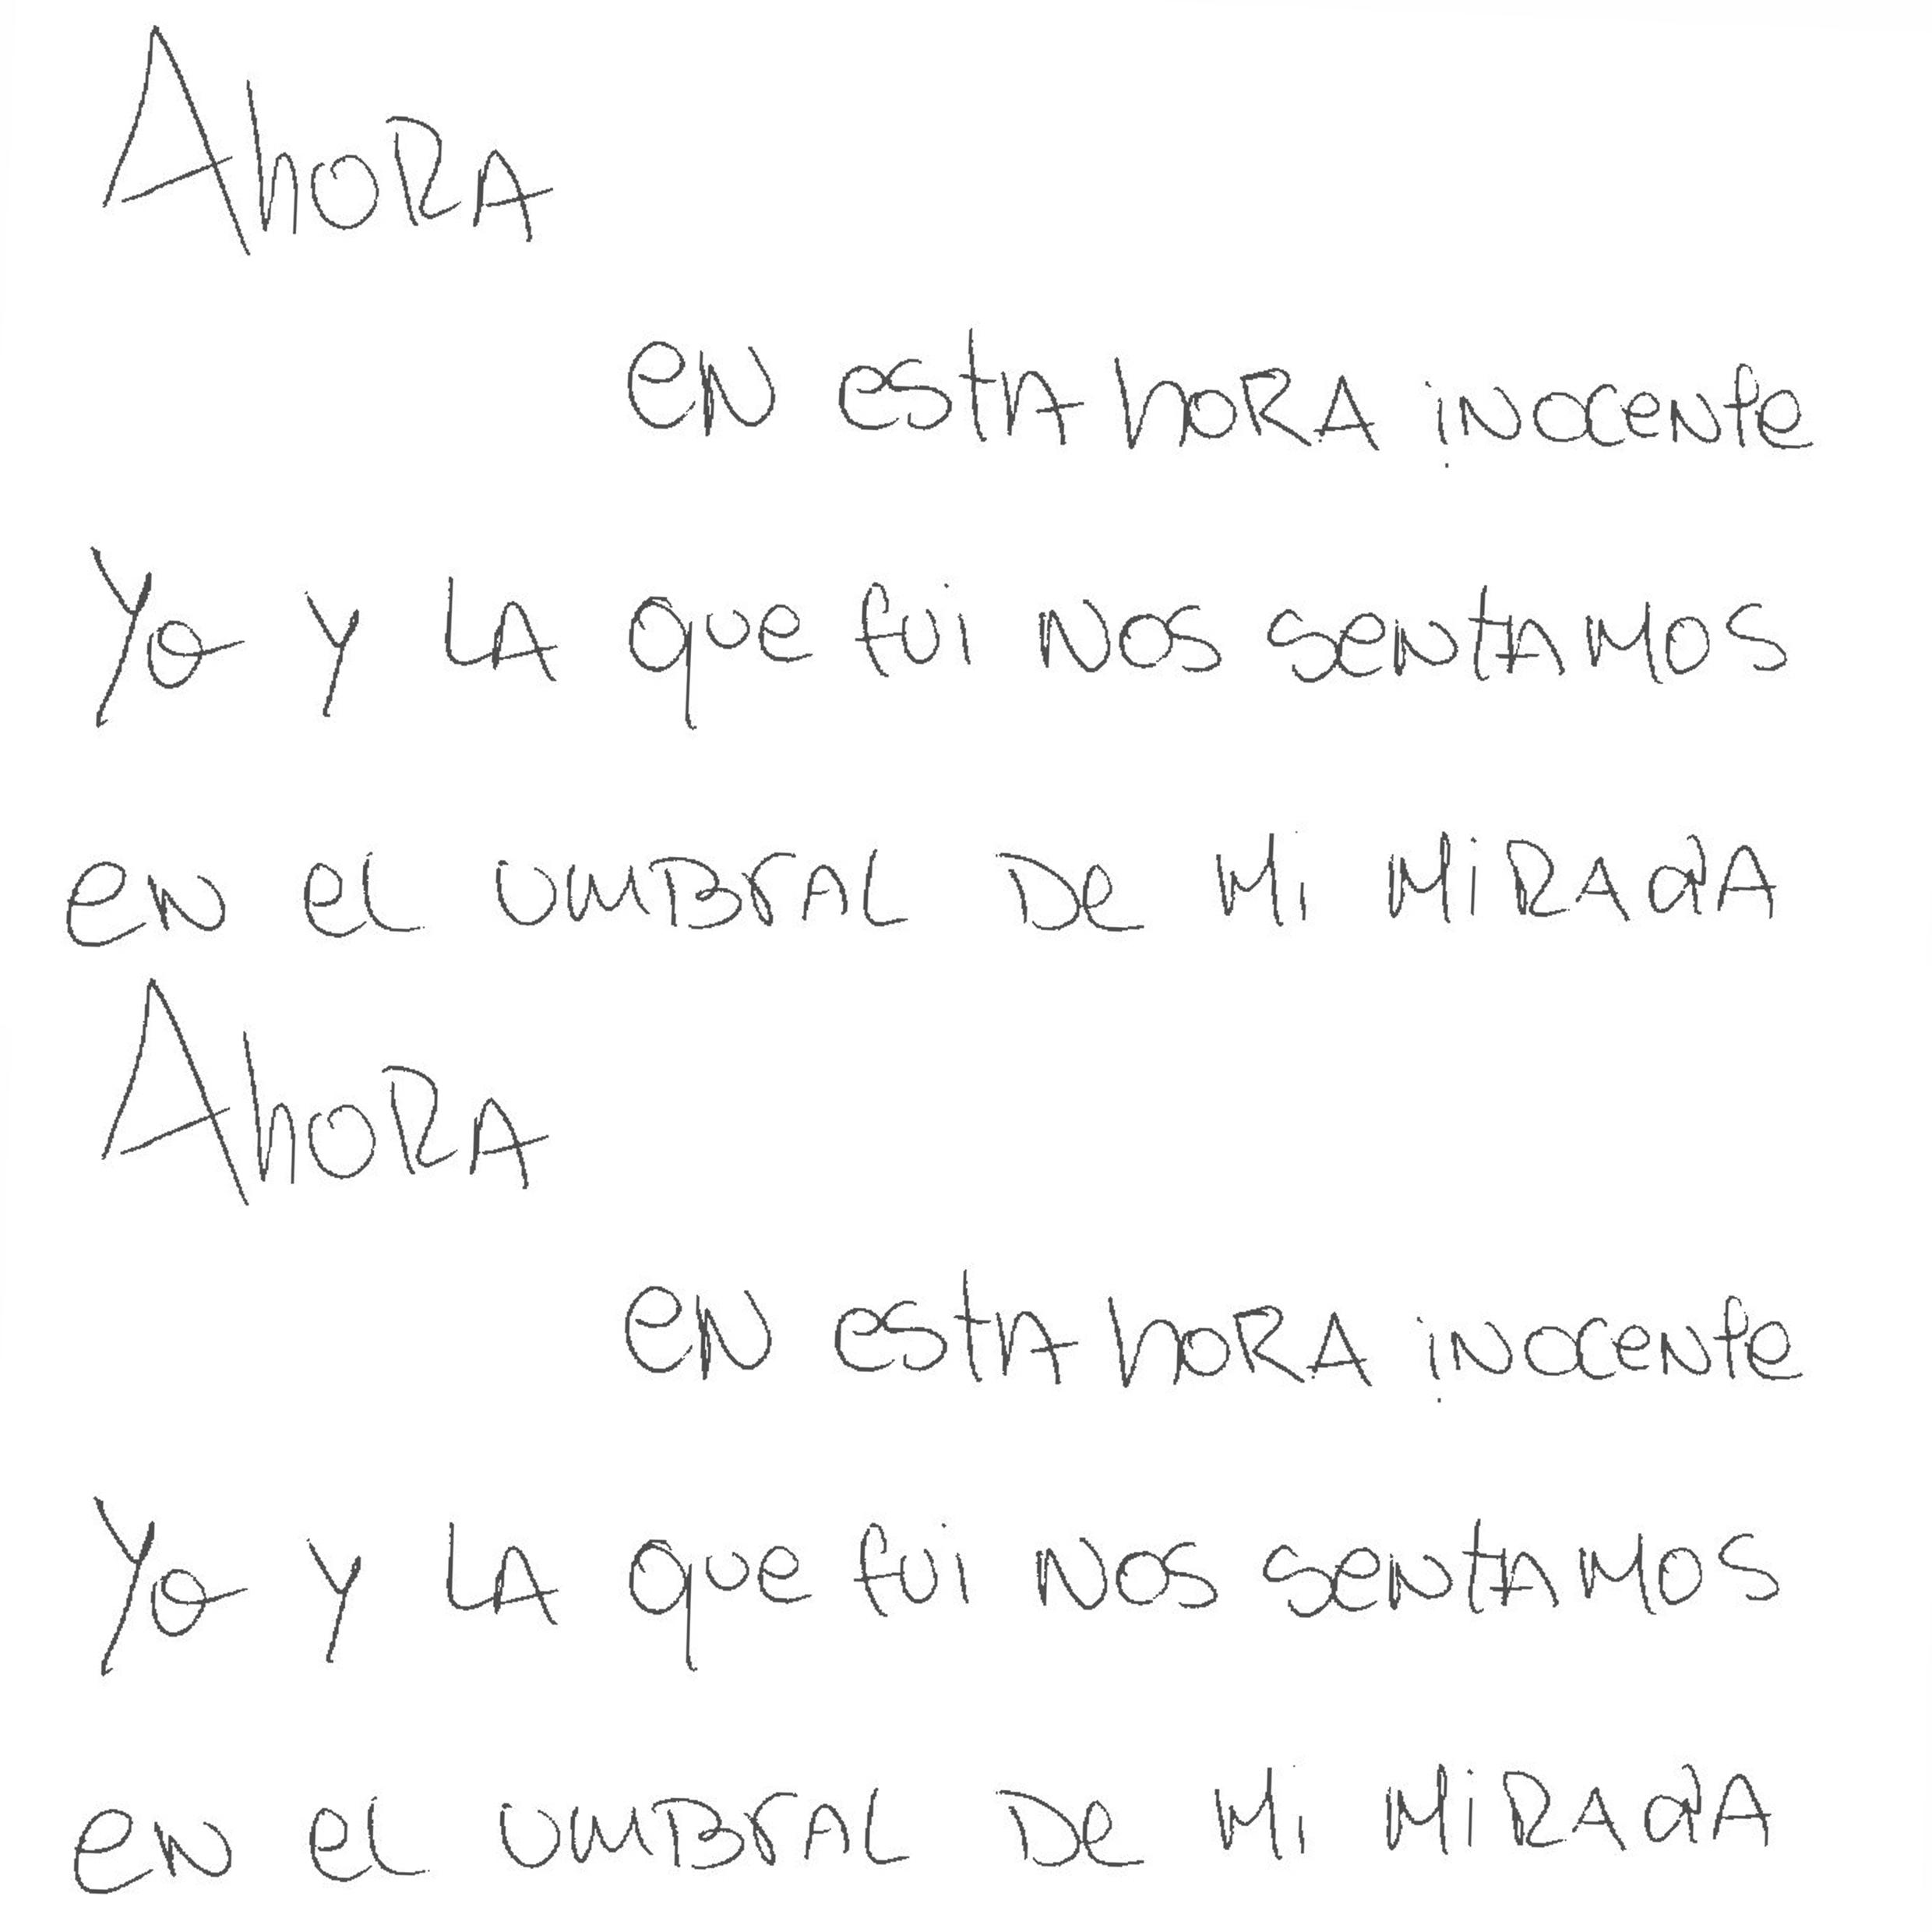 Ahora
en esta hora inocente
Yo y la que fui nos sentamos
en el umbral de mi mirada
Ahora
en esta hora inocente
Yo y la que fui nos sentamos
en el umbral de mi mirada